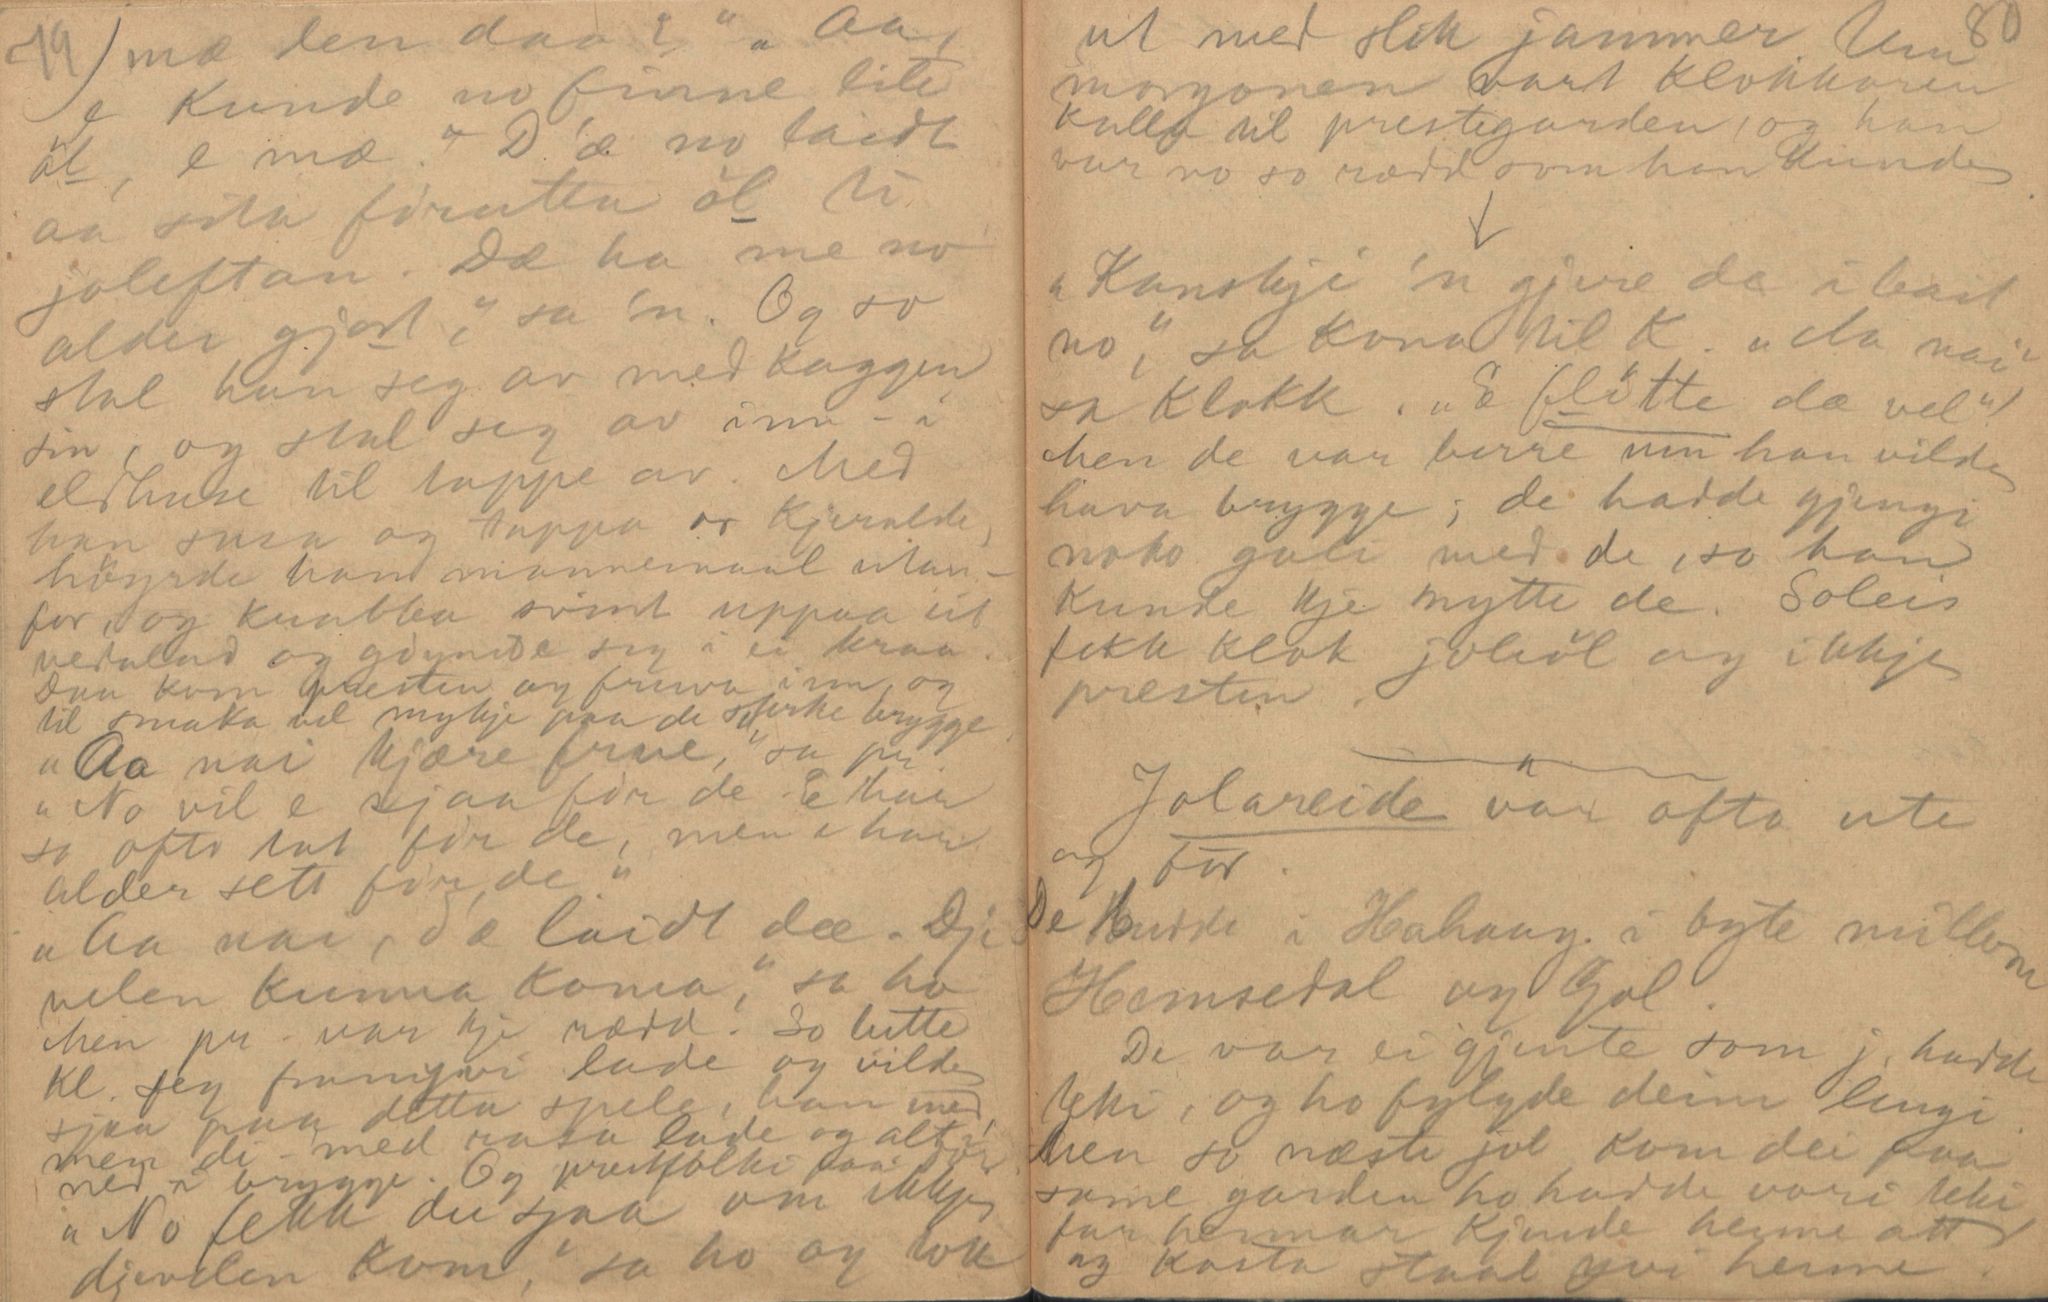 79) mæ den daa?" „Aa,
e kunde no finne lite
öl, e mæ." D'æ no laidt
aa sita forutta öl ti
joleftan. Dæ ha me no
alder gjort," sa 'n. Og so
stal han seg av med kaggen
sin, og stal seg av inn - i
eldhuse til tappe av. Med
han sasa og tappa or kjeralde,
höyrde han mannemaal utan-
for, og knabba svint uppaa eit
vedalad og göymde seg i ei kraa.
Daa kom presten og fruva inn, og
til smaka vel mykje paa de sterke brygge.
„Aa nai kjære frue," sa pr.
„No vil e sjaa för de. E har
so ofto tat för de, men e har
alder sett för de."
„Aa nai, d'æ laidt dæ. Dje
velen kunna koma," sa ho
Men pr. var kje rædd. So lutte
kl. seg framyvi lade og vilde
sjaa paa detta spele, han med,
men di - med rasa lade og alt i
ned i brygge. Og prestfolki
„No fekk du sjaa om ikkje
djevelen kom," sa ho og tok
80
ut med slik jammer. Um
morgonen vart klokkaren
kalla til prestegarden, og han
var no so rædd som han kunde
↓
„Kanskji 'n gjere da i bait
no," sa kona til K. „Aa nai"
sa Klokk. „E flötte dæ vel"
Men de var berre um han vilde
hava brygge; de hadde gjengi
noko gali med de, so han
kunde kje nytte de. Soleis
fekk klok joleöl og ikkje
presten.
Jolareide var ofto ute
og för.
De budde i Hahaug i byte millom
Hemsedal og Gol.
De var ei gjente som j. hadde
teki, og ho fylgde deim lengi.
Men so næste jol kom dei paa
same garden ho hadde vori teki
far hennar kjende henne att
og kasta staal yvi henne.